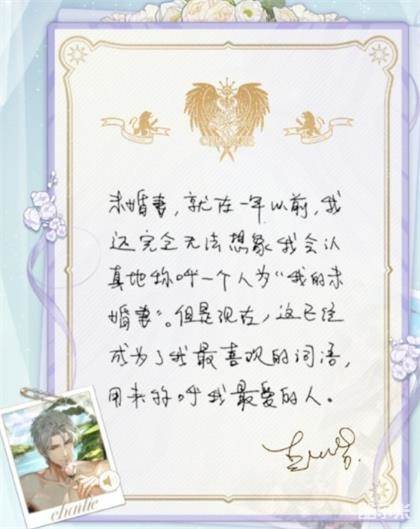 未婚妻，就在一年以前，我
还完全无法想象我会认
真地称呼一个人为“我的未
婚妻”。但是现在，这已经
成为了我最喜欢的词语，
用来称呼我最爱的人。
charlie